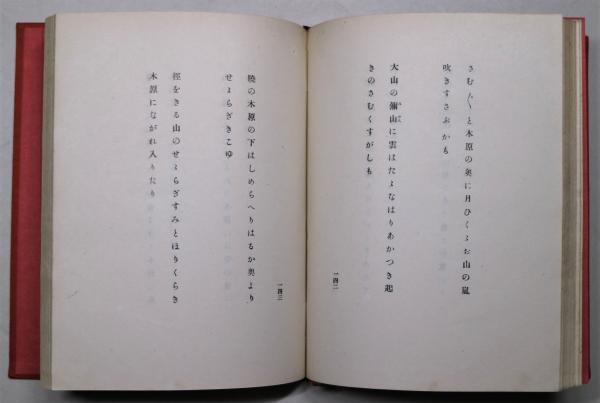 さむ〴〵と木原の奥に月ひくくお山の嵐
吹きすさぶかも
大山の彌山に雲はたよなはりあかつき起
きのさむくすがしも
一四二
暁の木原の下はしめらへりはるか奥より
せせらぎきこゆ
徑をきる山のせせらぎすみとほりくらき
木原にながれ入りたり
一四三